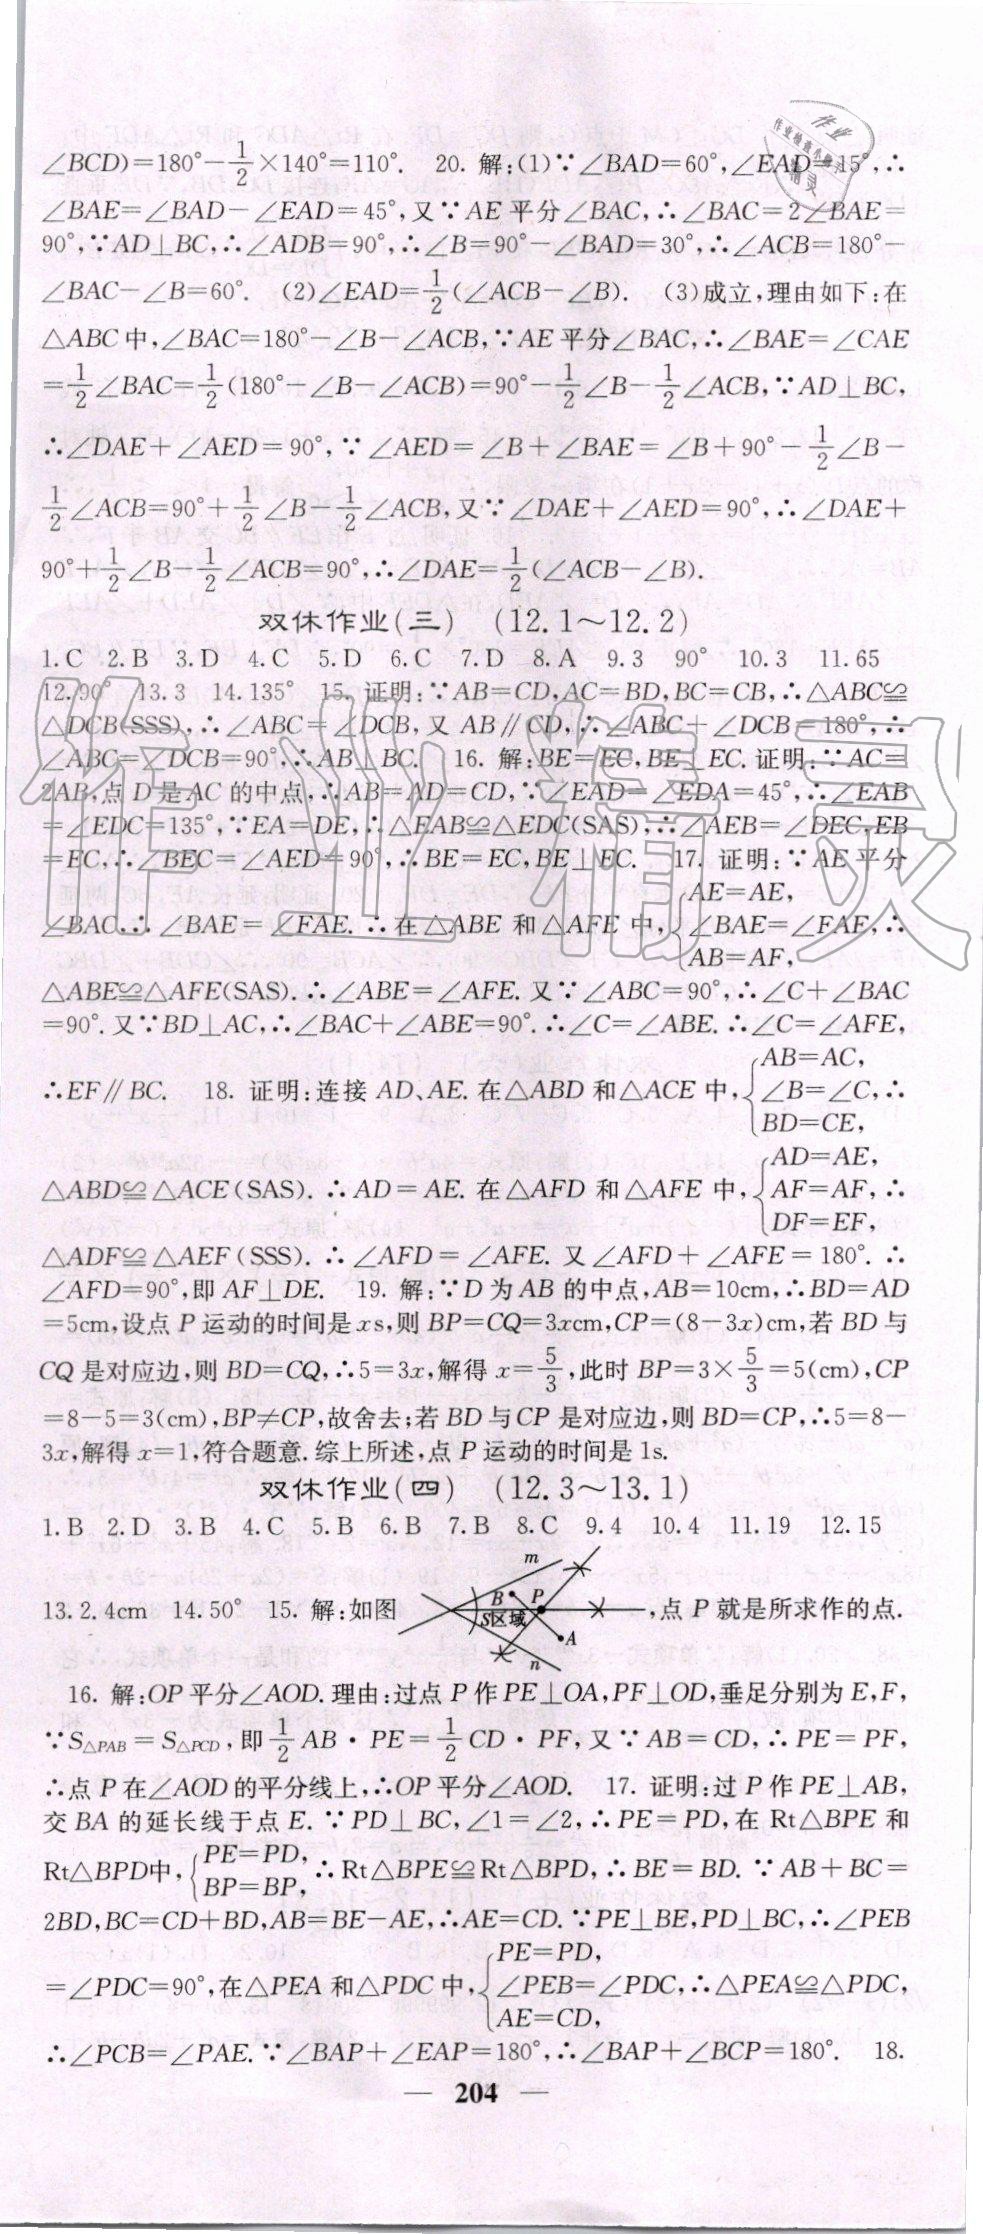 ∠BCD)=180°-1/2×140°=110°. 20. 解:(1)∵∠BAD=60°,∠EAD=15°,∴
∠BAE=∠BAD-∠EAD=45°,又∵AE平分∠BAC,∴∠BAC=2∠BAE=
90°,∵AD⊥BC,∴∠ADB=90°,∴∠B=90°-∠BAD=30°,∴∠ACB=180°-
∠BAC-∠B=60°. (2)∠EAD=1/2(∠ACB-∠B). (3)成立,理由如下:在
△ABC中,∠BAC=180°-∠B-∠ACB,∵AE平分∠BAC,∴∠BAE=∠CAE
=1/2∠BAC=1/2(180°-∠B-∠ACB)=90°-1/2∠B-1/2∠ACB,∵AD⊥BC,
∴∠DAE+∠AED=90°,∵∠AED=∠B+∠BAE=∠B+90°-1/2∠B-
1/2∠ACB=90°+1/2∠B-1/2∠ACB,又∵∠DAE+∠AED=90°,∴∠DAE+
90°+1/2∠B-1/2∠ACB=90°,∴∠DAE=1/2(∠ACB-∠B).
双休作业(三) (12.1~12.2)
1.C 2.B 3.D 4.C 5.D 6.C 7.D 8.A 9.3 90° 10.3 11.65
12.90° 13.3 14.135° 15. 证明:∵AB=CD,AC=BD,BC=CB,∴△ABC≌
△DCB(SSS),∴∠ABC=∠DCB,又AB∥CD,∴∠ABC+∠DCB=180°,∴
∠ABC=∠DCB=90°,∴AB⊥BC. 16. 解:BE=EC,BE⊥EC.证明:∵AC=
2AB,点D是AC的中点,∴AB=AD=CD,∵∠EAD=∠EDA=45°,∴∠EAB
=∠EDC=135°,∵EA=DE,∴△EAB≌△EDC(SAS),∴∠AEB=∠DEC,EB
=EC,∴∠BEC=∠AED=90°,∴BE=EC,BE⊥EC. 17. 证明:∵AE平分
AE=AE,
∠BAC,∴∠BAE=∠FAE.∴在△ABE和△AFE中,{∠BAE=∠FAE,∴
AB=AF,
△ABE≌△AFE(SAS).∴∠ABE=∠AFE.又∵∠ABC=90°,∴∠C+∠BAC
=90°.又∵BD⊥AC,∴∠BAC+∠ABE=90°.∴∠C=∠ABE.∴∠C=∠AFE,
AB=AC,
∴EF∥BC. 18. 证明:连接AD、AE.在△ABD和△ACE中,{∠B=∠C,∴
BD=CE,
AD=AE,
△ABD≌△ACE(SAS).∴AD=AE.在△AFD和△AFE中,{AF=AF,∴
DF=EF,
△ADF≌△AEF(SSS).∴∠AFD=∠AFE.又∠AFD+∠AFE=180°.∴
∠AFD=90°,即AF⊥DE. 19. 解:∵D为AB的中点,AB=10cm,∴BD=AD
=5cm,设点P运动的时间是xs,则BP=CQ=3xcm,CP=(8-3x)cm,若BD与
CQ是对应边,则BD=CQ,∴5=3x,解得x=5/3,此时BP=3×5/3=5(cm),CP
=8-5=3(cm),BP≠CP,故舍去;若BD与CP是对应边,则BD=CP,∴5=8-
3x,解得x=1,符合题意.综上所述,点P运动的时间是1s.
双休作业(四) (12.3~13.1)
1.B 2.D 3.B 4.C 5.B 6.B 7.B 8.C 9.4 10.4 11.19 12.15
m
B P
13.2.4cm 14.50° 15. 解:如图 S区域 ,点P就是所求作的点.
A
n
16. 解:OP平分∠AOD.理由:过点P作PE⊥OA,PF⊥OD,垂足分别为E,F,
∵S△PAB=S△PCD,即1/2AB·PE=1/2CD·PF,又∵AB=CD,∴PE=PF,
∴点P在∠AOD的平分线上,∴OP平分∠AOD. 17. 证明:过P作PE⊥AB,
交BA的延长线于点E.∵PD⊥BC,∠1=∠2,∴PE=PD,在Rt△BPE和
Rt△BPD中,{PE=PD, BP=BP,∴Rt△BPE≌Rt△BPD,∴BE=BD.∵AB+BC=
2BD,BC=CD+BD,AB=BE-AE,∴AE=CD.∵PE⊥BE,PD⊥BC,∴∠PEB
PE=PD,
=∠PDC=90°,在△PEA和△PDC中,{∠PEB=∠PDC,∴△PEA≌△PDC,
AE=CD,
∴∠PCB=∠PAE.∵∠BAP+∠EAP=180°,∴∠BAP+∠BCP=180°. 18.
— 204 —